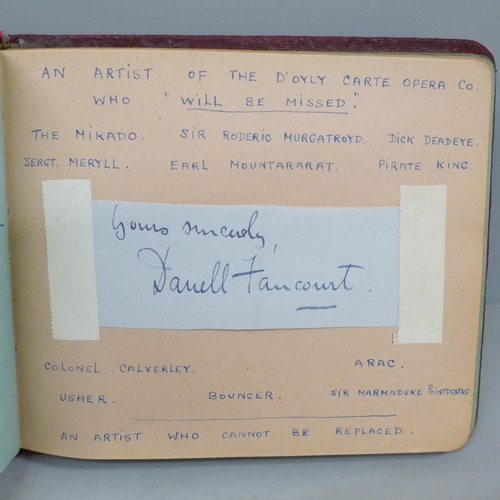 AN ARTIST OF THE D'OYLY CARTE OPERA CO.
WHO "WILL BE MISSED".
THE MIKADO. SIR RODERIC MURGATROYD. DICK DEADEYE.
SERGT. MERYLL. EARL MOUNTARARAT. PIRATE KING
Yours sincerely,
Darrell Fancourt.
COLONEL CALVERLEY. ARAC.
USHER. BOUNCER. SIR MARMADUKE POINTDEXTRE
AN ARTIST WHO CANNOT BE REPLACED.